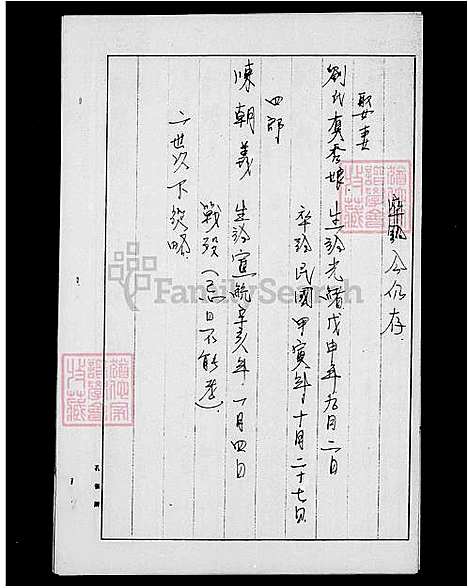 卒歿今仍存.
娶妻
劉氏真香娘 生於光緒戊申年 月二日
卒於民國甲寅年十月二十七日
四郎
陳朝義 生於宣統辛亥年一月四日
戰歿(忌日不能考)
二世以下從略
FamilySearch